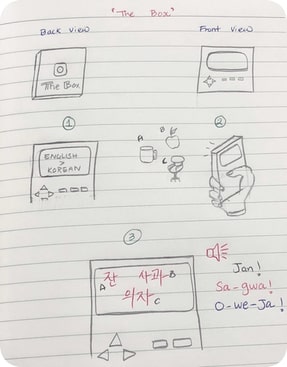 "The Box"
Back View
Front View
The Box
1
2
ENGLISH
>
KOREAN
A
B
C
3
잔 사과 B
A
의자 C
Jan!
Sa-gwa!
O-we-Ja!